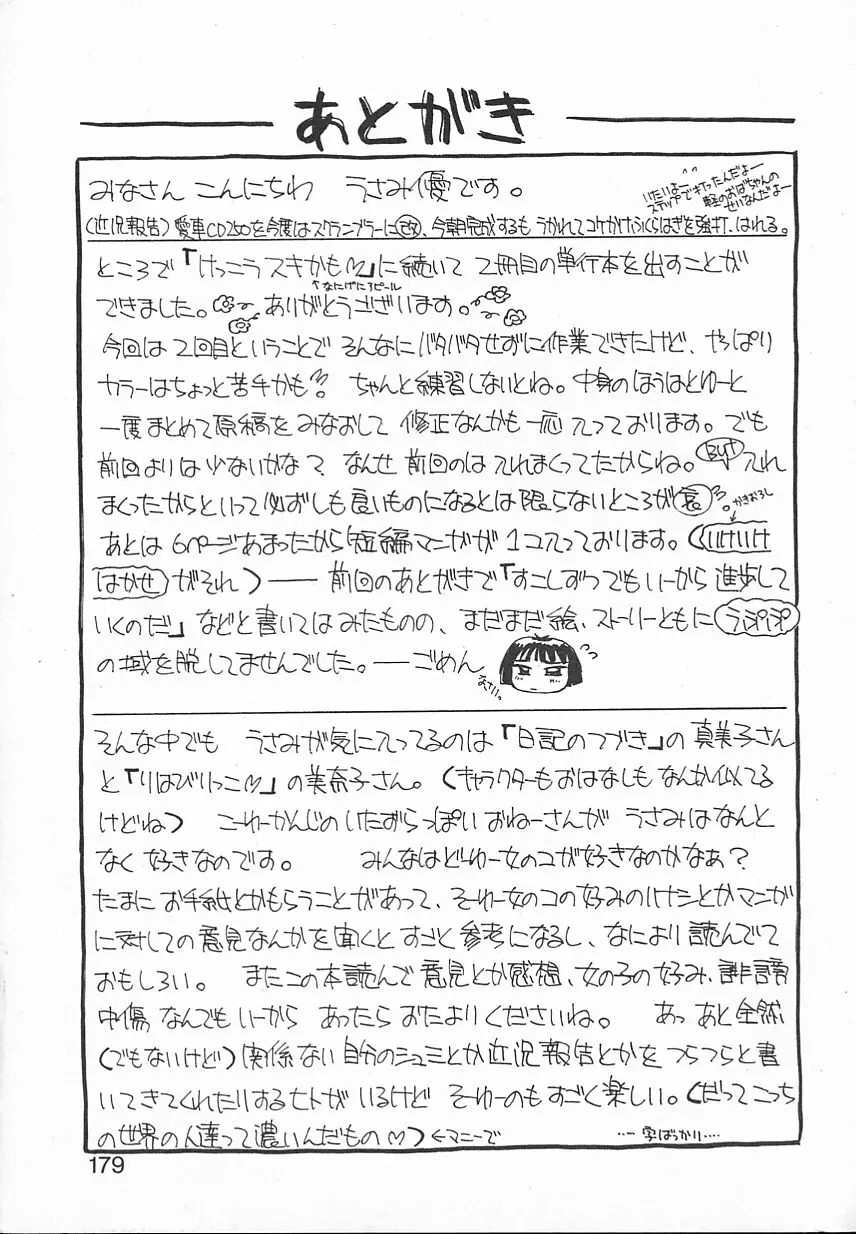 あとがき
みなさん こんにちわ うさみ優です。
いたいよー
ステップで打ったんだよー
軽のおばちゃんの
せいなんだよー
(近況報告)愛車CD250を今度はスクランブラーに改、今朝完成するも うかれてコケかけふくらはぎを強打、はれる。
ところで「けっこうスキかも♡」に続いて 2冊目の単行本を出すことが
↑なにげにアピール
できました。ありがとうございます。
今回は2回目ということで そんなにバタバタせずに作業できたけど、やっぱり
カラーはちょっと苦手かも ちゃんと練習しないとね。中身のほうはとゆーと
一度まとめて原稿をみなおして 修正なんかも一応入っております。でも
前回よりは少ないかな? なんせ前回のは入れまくってたからね。But 入れ
まくったからといって必ずしも良いものになるとは限らないところが哀。
かきおろし
あとは6ページあまったから短編マンガが1コ入っております。(いけいけ
はかせがそれ)── 前回のあとがきで「すこしずつでもいーから進歩して
いくのだ」などと書いてはみたものの、まだまだ絵、ストーリーともにうぷぷ
の域を脱してませんでした。──ごめん
なさい。
そんな中でも うさみが気に入ってるのは「日記のつづき」の真美子さん
と「りはびりっこ♡」の美奈子さん。(キャラクターもおはなしもなんか似てる
けどね) こーゆーかんじのいたずらっぽいおねーさんが うさみはなんと
なく好きなのです。 みんなはどーゆー女のコが好きなのかなぁ?
たまにお手紙とかもらうことがあって、そーゆー女のコの好みのハナシとかマンガ
に対しての意見なんかを聞くとすごく参考になるし、なにより読んでて
おもしろい。 またこの本読んで意見とか感想、女の子の好み、誹謗
中傷なんでもいーから あったらおたよりくださいね。 あっ あと全然
(でもないけど)関係ない自分のシュミとか近況報告とかをつらつらと書
いてきてくれたりするヒトがいるけど そーゆーのもすごく楽しい。(だってこっち
の世界の人達って濃いんだもの♡)←マニーで
…字ばっかり…
179